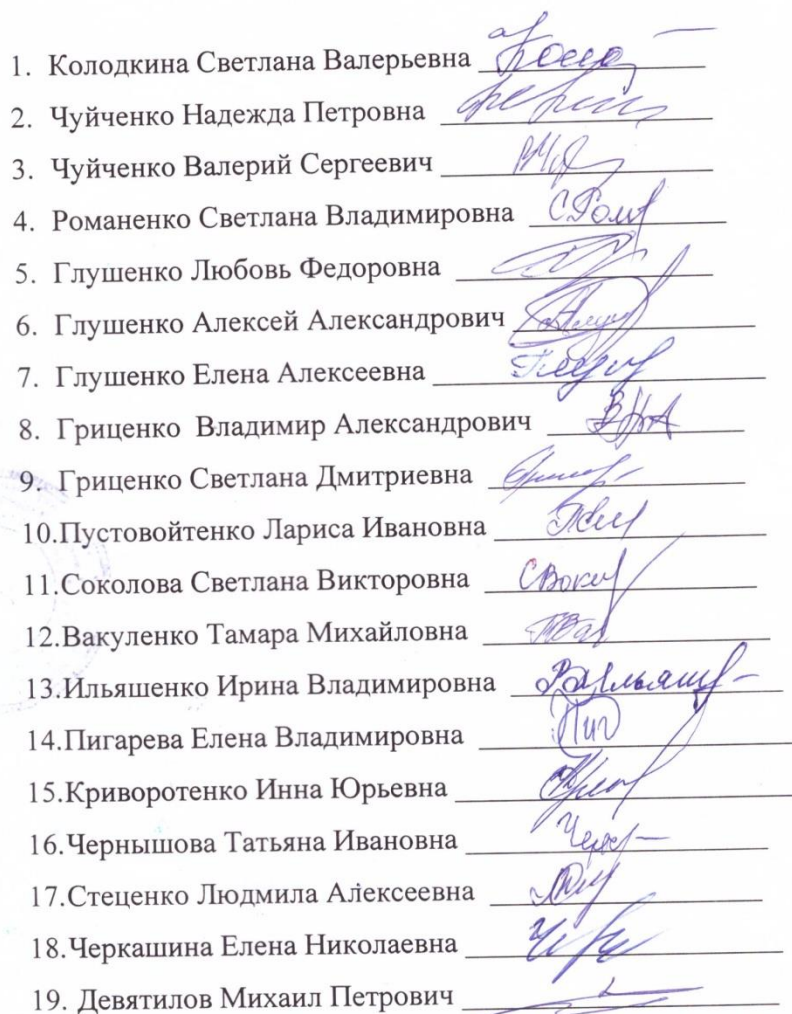 1. Колодкина Светлана Валерьевна
2. Чуйченко Надежда Петровна
3. Чуйченко Валерий Сергеевич
4. Романенко Светлана Владимировна
5. Глушенко Любовь Федоровна
6. Глушенко Алексей Александрович
7. Глушенко Елена Алексеевна
8. Гриценко Владимир Александрович
9. Гриценко Светлана Дмитриевна
10.Пустовойтенко Лариса Ивановна
11.Соколова Светлана Викторовна
12.Вакуленко Тамара Михайловна
13.Ильяшенко Ирина Владимировна
14.Пигарева Елена Владимировна
15.Криворотенко Инна Юрьевна
16.Чернышова Татьяна Ивановна
17.Стеценко Людмила Алексеевна
18.Черкашина Елена Николаевна
19. Девятилов Михаил Петрович